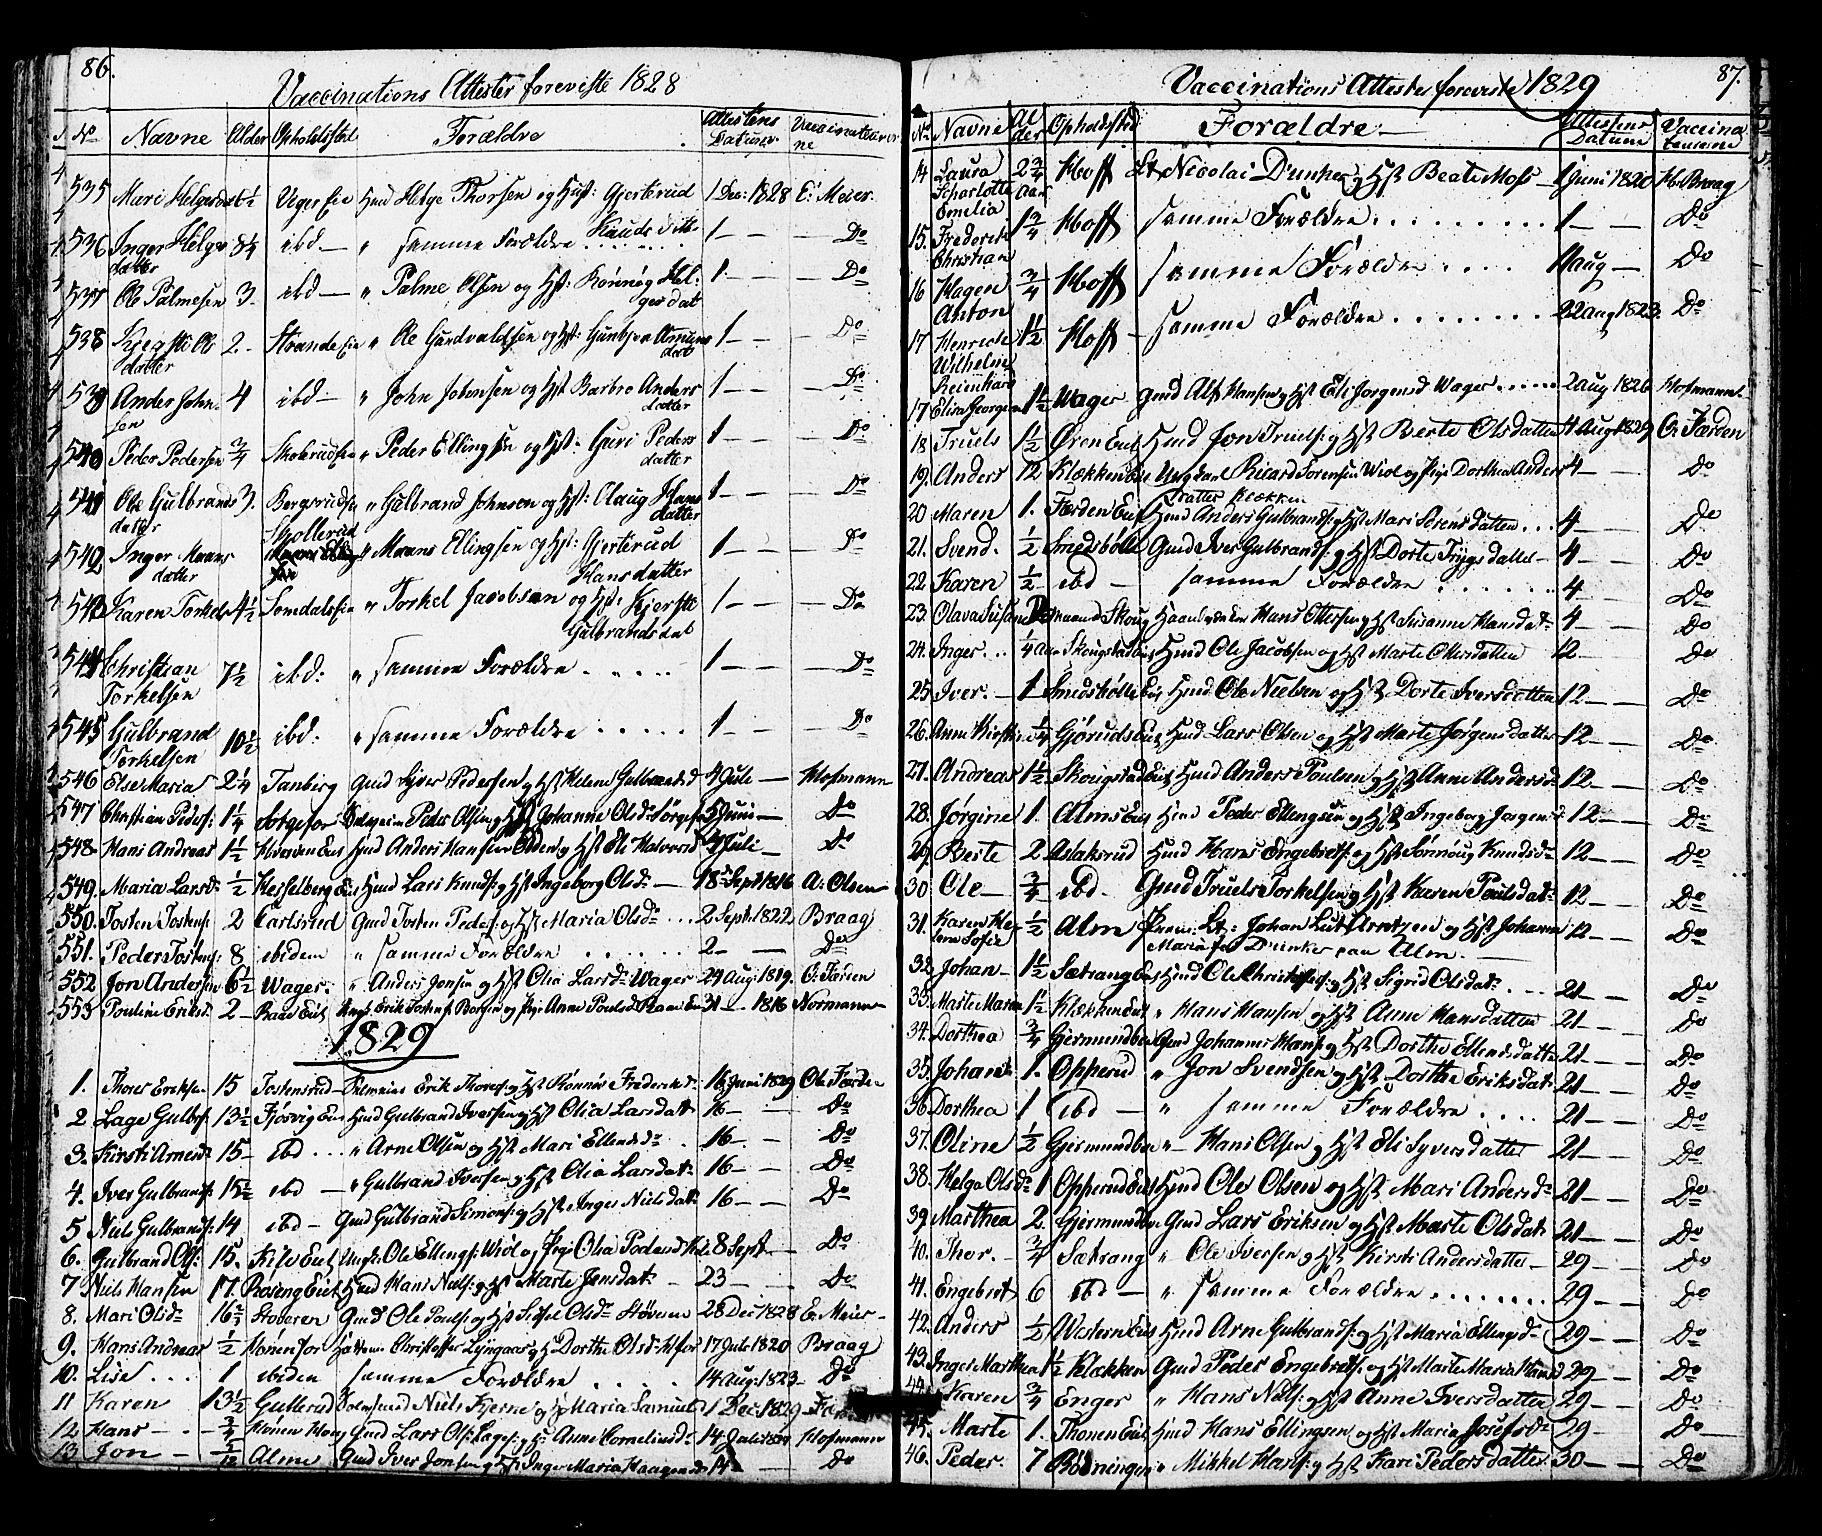 86.
Vaccinations Attester foreviste 1828
No Navne Alder Opholdsted Forældre Attestens Datum Vaccinateurerne
535 Mari Helgersdt Veger Eie Hmd Helge Thorsen og Hust: Gjertrud Knuds datt 1 Dec: 1828 E: Meier.
536 Inger Helgers datter ibd — " samme Forældre 1 — — Do
537 Ole Palmesen 3. ibd — " Palme Olsen og Hst: Rønnøg Helgersdat 1 — — Do
538 Kjersti Ols datter 2. Strande Eie " Ole Gundvaldsen og Hst: Gunbjør Amunds datt 1 — — Do
539 Anders Johnsen 4 ibd — " John Johnsen og Hst Barbro Anders datter 1 — — Do
540 Peder Pedersen 3/4 " Peder Ellingsen og Hst: Guri Peders datter 1 — — Do
541 Ole Gulbrands datter 3. " Gulbrand Johnsen og Hst: Olaug Hans datter 1 — — Do
542 Inger Maans datter Skollerud " Maans Ellingsen og Hst: Gjertrud Hans datter 1 — — Do
543 Karen Torkels 4 1/2 Somdals Eie " Torkel Jacobsen og Hst: Kjersti Gulbrands dat 1 — — Do
544 Christian Torkelsen 7 1/2 ibd: " samme Forældre . . . . . 1 — — Do
545 Gulbrand Torkelsen 10 1/2 ibd: " samme Forældre . . . . . 1 — — Do
546 Else Maria 2 1/4 Tanberg Gmd Syver Pedersen og Hst Helene Gulbrandsd 4 Juli — Hofmann
547 Christian Peders: 1 1/4 Peder Olsen og Hst Johanne Olsd: 5 Juni — Do
548. Hans Andreas 1 1/2 Hverven Eiet Hmd Anders Hansen og Hst Eli Halvorsd 4 Juli — Do
549. Maria Larsd: 1/2 Hesselberg Eiet Hmd Lars Knuds: og Hst Ingeborg Olsd: — 18 Sept 1816 A: Olsen
550. Tosten Tostens: 2 Carlsrud Gmd Tosten Peders: og Hst Maria Olsd: . . . 2 Sept: 1822 Braag
551. Peder Tostens: 8 ibidem " samme Forældre . . . . . . 2 — — Do
552 Jon Andersen 6 1/2 Wager. " Anders Jonsen og Hst Olia Larsd: Wager 24 Aug: 1819. O: Færden
553 Pouline Eriksd: 2 — Raae Eiet Ungk: Erik Tostens: Borgen og Pige Anne Poulsd 31 — 1816 Normann
1829
1. Thores Eriksen 15 Tostensrud Erik Thores: og Hst Rønnøv Frederiksd: 16 Juni 1829 Ole Færden
2 Lage Gulbrs: 13 1/2 Fjøsvig Eiet Hmd Gulbrand Iversen og Hst Olia Larsdatt 16 — — Do
3. Kirsti Arnesd: 15 — ibd . . . " Arne Olsen og Hst Mari Ellensd: . 16 — — Do
4. Iver Gulbrands: 15 1/2 ibd — " Gulbrand Iversen og Hst Olia Larsdat: 16 — — Do
5 Niels Gulbrands: 14 ibd — Gmd Gulbrand Simons: og Hst Inger Nielsdat: 16 — — Do
6. Gulbrand Ols: 15. Kile Eiet Ungk: Ole Ellings: Wiøl og Pige Olia Pedersd Kile 8 Sept — Do
7 Niels Hansen 17. Roseng Eiet Hmd Hans Niels: og Hst Marte Jensdat: — 23 — Do
8. Mari Olsd: Støveren Gmd: Ole Pouls: og Hst Sidsel Olsd: Støveren 28 Dec 1828 E. Meier —
9. Hans Andreas 1/2 Christoffer Lyngaas og H: Dorthe Olsd: 17 Juli 1820 Braag
10. Lise . . . 1 ibiden samme Forældre . . . . . 14 Aug: 1823. Do
11 Karen 13 1/2 Gullerud Niels Hjerne og Maria Samuels 1 Dec: 1829
12 Hans — Hønen Gmd Lars Ols: Lager: og H: Anne Corneliusd: 14 Juli Hofmann
13. Jon — Alme Gmd Iver Jonsen og Hst Inger Maria Haagensd: 14 Do
87.
Vaccinations Attester foreviste 1829
No Navne Alder Opholdsted Forældre — Attestens Datum Vaccinateurerne
14 Laura Scharlotte Emelia 2 3/4 Aar Hoff Lt. Nicolai Dunker og Hst Beate Moss — 1 Juni 1820 Braag
15. Frederik Christian 1 3/4 Hoff samme Forældre . . . . . . . 1 — — Do
16 Hagen Anton 3/4 Hoff samme Forældre . . . . 11 Aug — Do
17 Henrich Wilhelm Reinhard 1 1/2 Hoff — samme Forældre . . . . . . . . 22 Aug 1823. Do
17 Elisa Georgine 1 1/2 Wager Gmd Alf Hansen og Hst Eli Jorgensd Wager . . . . . 2 Aug 1826 Hofmann.
18 Truels 1 1/2 Øren Eiet Hmd Jon Truels: og Hst Berte Olsdatter 4 Aug: 1829 O: Færden
19. Anders 12 Klækken Eiet Ungkarl Ricard Sorensen Wiol og Pige Dorthea Anders datter Klækken 4 — — Do
20 Maren 1. Færden Eiet Hmd Anders Gulbrands: og Hst Mari Sørensdatter . . . 4 — — Do
21. Svend. 1/2 Smedsbølle Gmd Iver Gulbrands: og Hst Dorte Trygsdatter — 4 — — Do
22. Karen 1/2 ibd — samme Forældre . . . . . . . 4 — — Do
23. Olava Susanne Skoug Haandværker Hans Ottersen og Hst Susanne Hansdat: 4 — — Do
24. Inger . . 1/4 Aar Skougstad Eiet Hmd Ole Jacobsen og Hst Marte Ottersdatter 12 — — Do
25. Iver. — 1 Smedsbølle Eiet Hmd Ole Nielsen og Hst Dorte Iversdatter 12 — — Do
26. Anne Kirstine 1/4 Gjøruds Eiet Hmd Lars Olsen og Hst Marte Jørgensdatter 12 — — Do
27. Andreas 1 1/2 Skougstad Eiet Hmd Anders Poulsen og Hst Anne Andersd: 12 — — Do
28. Jørgine 1. Alms Eiet Hmd Peder Ellengsen og Hst Ingeborg Jorgens: 12 — — Do
29. Berte 2 Aslaksrud Hmd Hans Engebrets: og Hst Sønnoug Knudsd: 12 — — Do
30 Ole — 3/4 ibd. Gmd Truels Torkelsen og Hst Karen Poulsdat: 12 — — Do
31. Karen Helene Sofie 1/2 Alm Prem: Lt: Johan Lut Arntzen og Hst Johanne Maria f: Dunker paa Alm. 12 — — Do
32. Johan — 1 1/2 Sætrang Eiet Hmd Ole Christofers: og Hst Sigrid Olsdat: . . . . 21 — — Do
33. Marte Maren 1 1/2 Klækken Eiet " Hans Hansen og Hst Anne Hansdatter 21 — — Do
34. Dorthea 3/4 Gjermundboe Gmd Johannes Hans: og Hst Dorthe Ellensdatter 21 — — Do
35. Johan 1. Opperud " Jon Svendsen og Hst Dorthe Eriksdat: 21 — — Do
36. Dorthea 1 ibd — " samme Forældre . . . . 21 — — Do
37. Oline 1/2 Gjermundboe " — Hans Olsen og Hst Eli Syversdatter 21 — — Do
38. Helga Olsd: 1 Opperud Eiet Hmd Ole Olsen og Hst Mari Andersd: 21 — — Do
39. Marthea 2. Gjermundboe Gmd Lars Eriksen og Hst Marte Olsdat: 21 — — Do
40. Thor. — 3/4 Sætrang " Ole Iversen og Hst Kirsti Andersdatter — 29 — — Do
41. Engebret 6 ibd — " samme Forældre . . . . . . . . 29 — — Do
42. Anders 1/2 Western Eiet Hmd Arne Gulbrands: og Hst Maria Ellingsd: 29 — — Do
43. Inger Marthea 1 1/2 Klækken Gmd Peder Engebrets: og Hst Marte Maria Hansd 29 — — Do
44. Karen 3/4 Enger " Hans Niels: og Hst Anne Iversdatter 29 — — Do
45. Marte 1. Thonen Eiet Hmd Hans Ellingsen og Hst Maria Josefsd: 29 — Do
46. Peder. 7 Rødningen " Mikkel Hans: og Hst Kari Pedersdatter 30 — — Do